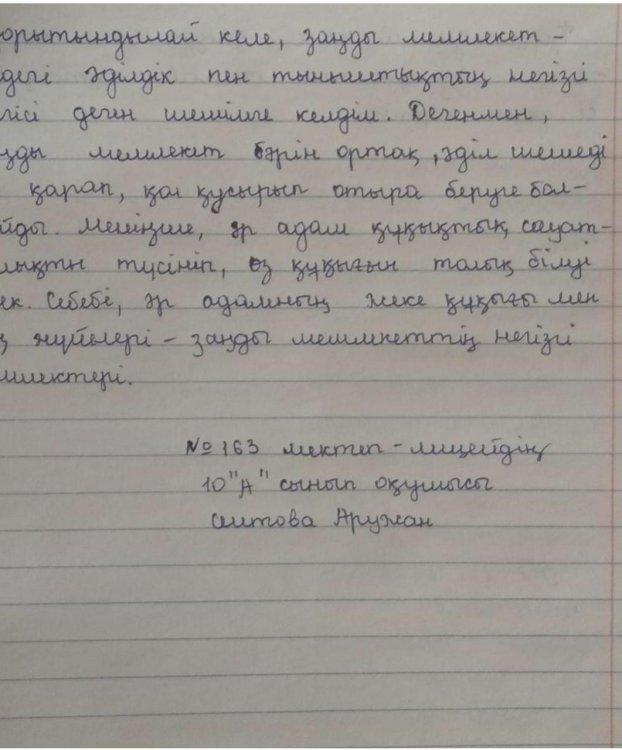 орытындылай келе, заңды мемлекет –
дегі әділдік пен тыныштықтың негізі
гісі деген шешімге келдім. Дегенмен,
ңды мемлекет бәрін ортақ, әділ шешеді
қарап, қол қусырып отыра беруге бол–
йды. Меніңше, әр адам құқықтық сауат–
лықты түсініп, өз құқығын толық білуі
ек. Себебі, әр адамның жеке құқығы мен
ң жүйелері – заңды мемлекеттің негізгі
млектері.
№ 163 мектеп – лицейдің
10 "А" сынып оқушысы
Сеитова Аружан